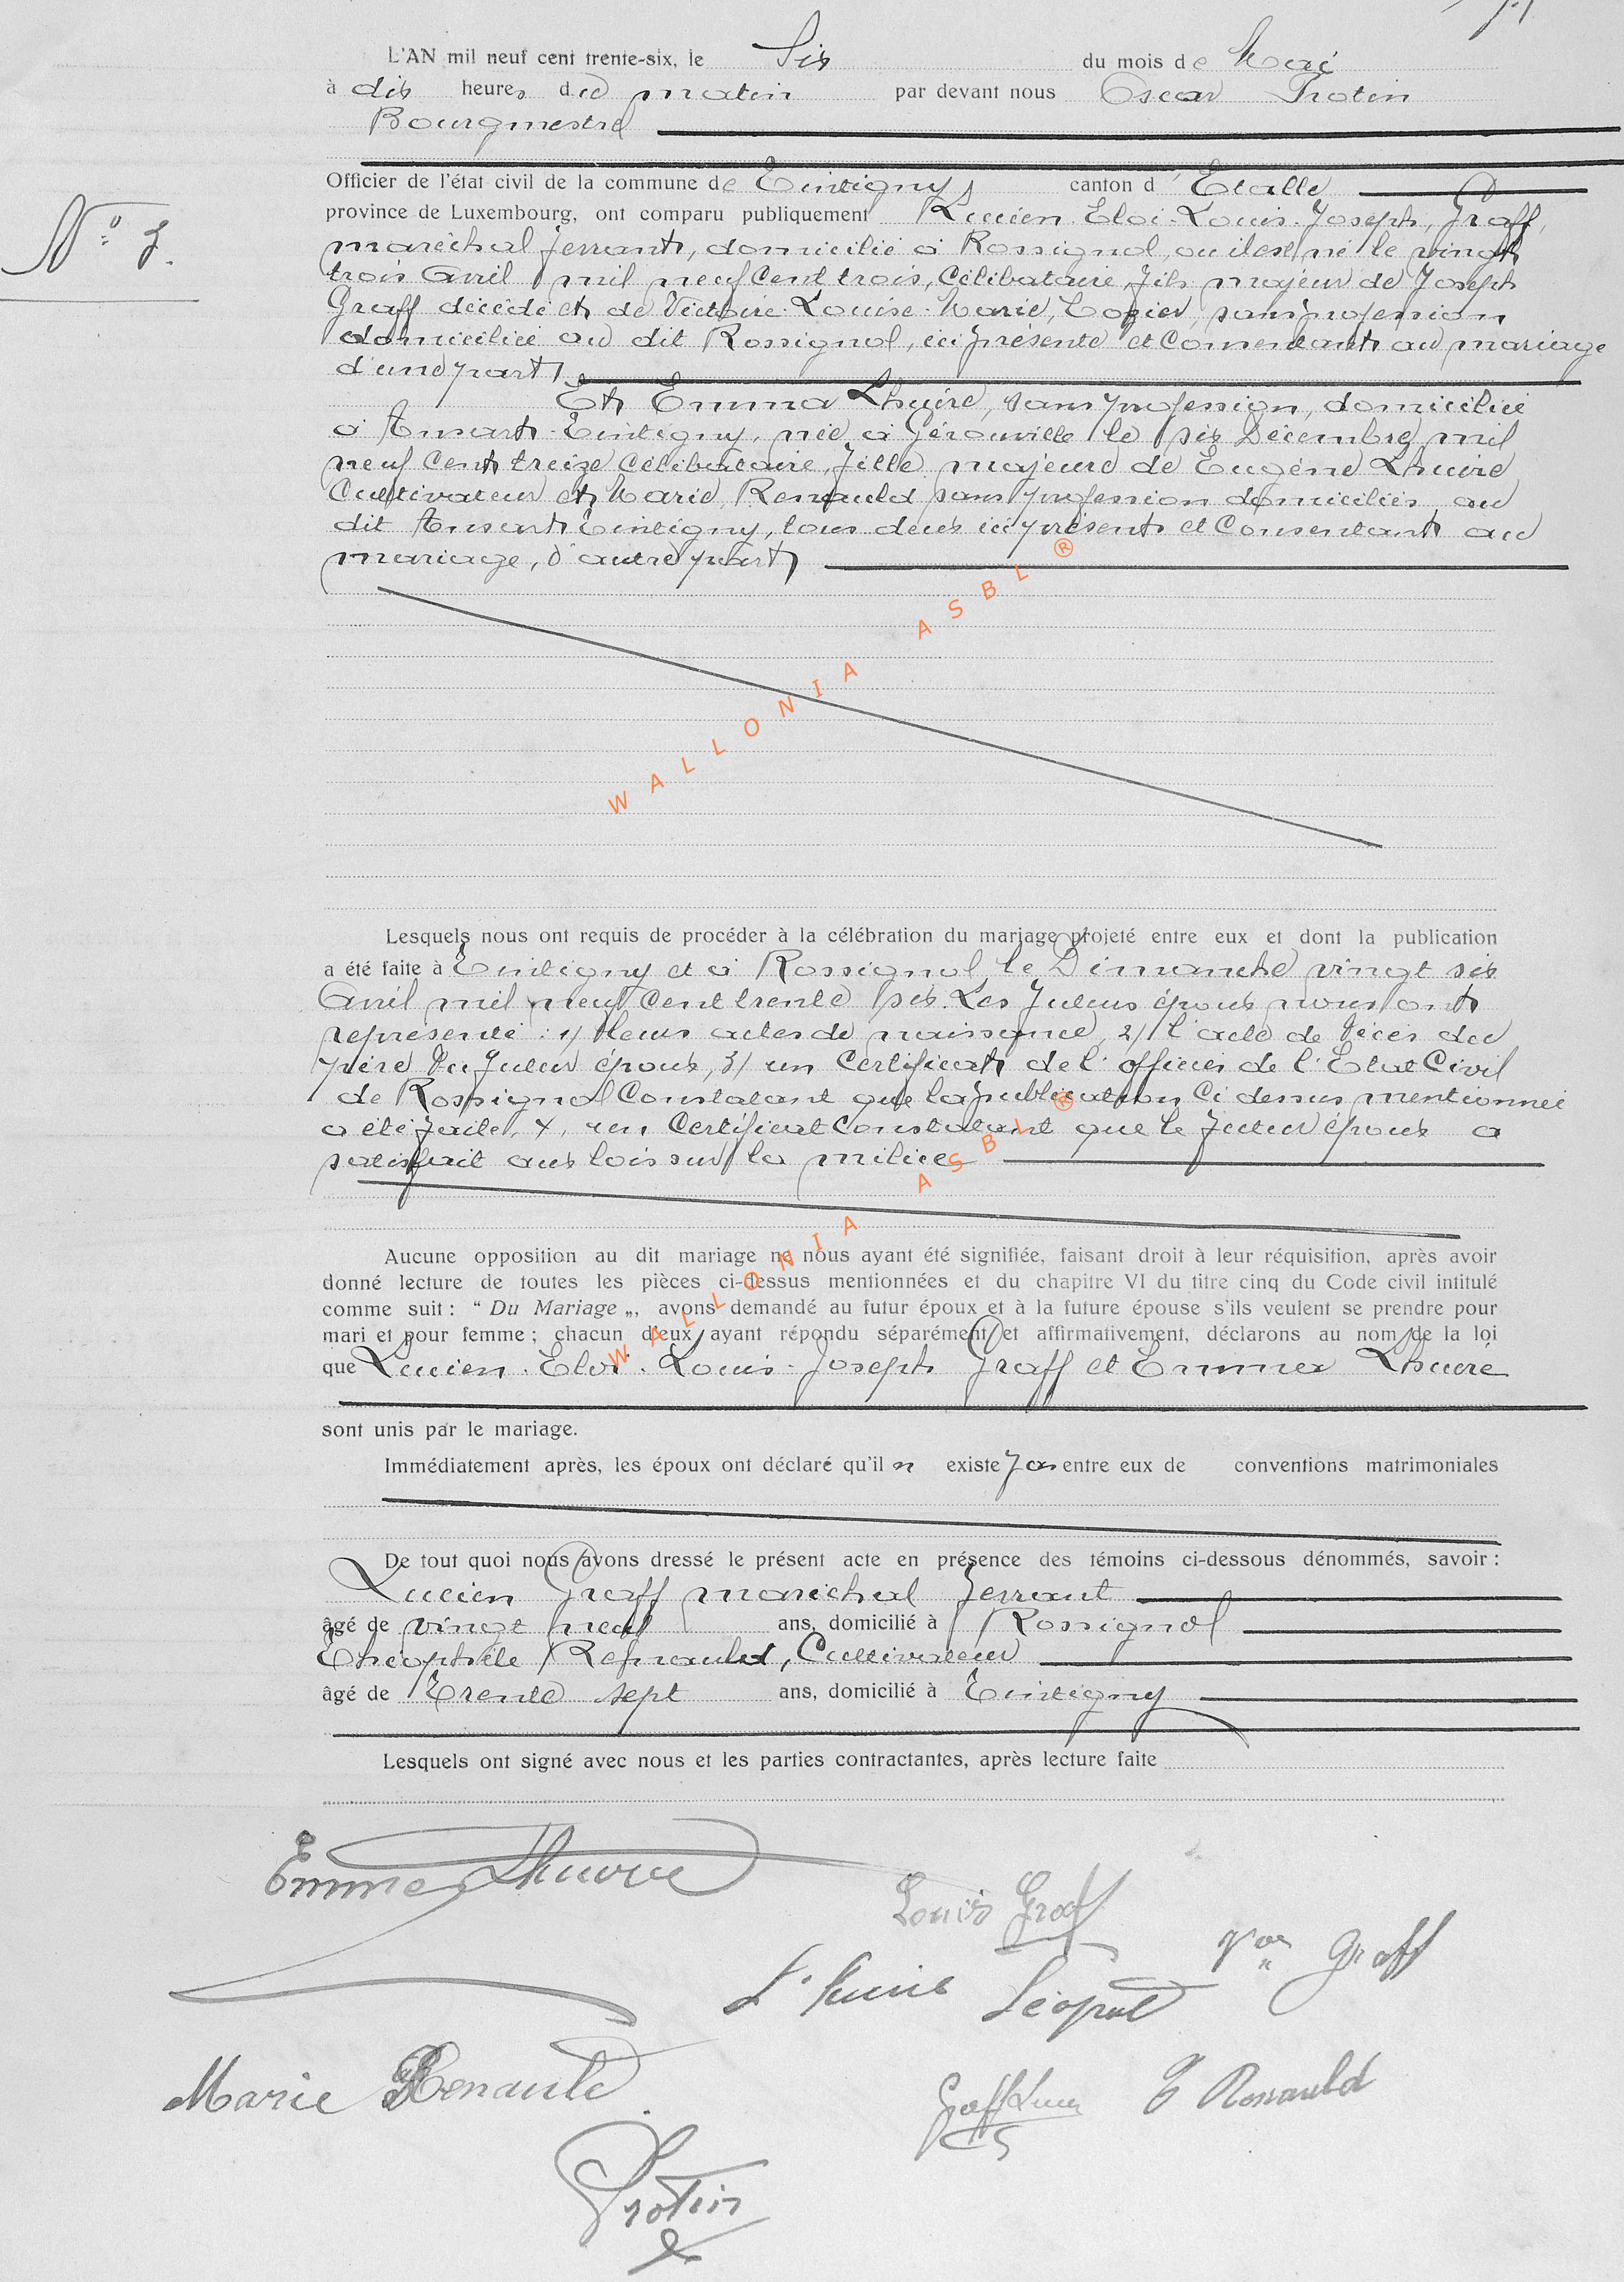 L'AN mil neuf cent trente-six, le Six du mois de Mai
à dix heures du matin par devant nous Oscar Protin
Bourgmestre
Officier de l'état civil de la commune de Tintigny, canton d'Etalle
province de Luxembourg, ont comparu publiquement Lucien-Eloi-Louis-Joseph, Graff,
N° 7.
maréchal ferrant, domicilié à Rossignol, ou il est né le vingt
trois Avril mil neuf cent trois, Célibataire, fils majeur de Joseph
Graff décédé et de Victoire-Louise-Marie, sans profession
domiciliée au dit Rossignol, ici présente et Consentant au mariage
d'une part,
Et Emma Lhuire, sans profession, domiciliée
à Ansart-Tintigny, née à Gérouville le six Décembre mil
neuf cent treize Célibataire, fille majeure de Eugène Lhuire
Cultivateur et Marie Renauld sans profession domiciliés au
dit Ansart Tintigny, tous deux ici présents et Consentants au
mariage, d'autre part,
WALLONIA ASBL ®
Lesquels nous ont requis de procéder à la célébration du mariage projeté entre eux et dont la publication
a été faite à Tintigny et à Rossignol le Dimanche vingt six
Avril mil neuf cent trente six. Les futurs époux nous ont
représenté : 1/ leurs actes de naissance, 2/ l'acte de décès du
père du futur époux, 3/ un Certificat de l'officier de l'Etat Civil
de Rossignol Constatant que la publication Ci dessus mentionnée
a été faite, 4, un Certificat Constatant que le futur époux a
satisfait aux lois sur la milice
WALLONIA ASBL ®
Aucune opposition au dit mariage ne nous ayant été signifiée, faisant droit à leur réquisition, après avoir
donné lecture de toutes les pièces ci-dessus mentionnées et du chapitre VI du titre cinq du Code civil intitulé
comme suit : “ Du Mariage „, avons demandé au futur époux et à la future épouse s'ils veulent se prendre pour
mari et pour femme ; chacun d'eux ayant répondu séparément et affirmativement, déclarons au nom de la loi
que Lucien-Eloi-Louis-Joseph Graff et Emma Lhuire
sont unis par le mariage.
Immédiatement après, les époux ont déclaré qu'il n existe pas entre eux de conventions matrimoniales
De tout quoi nous avons dressé le présent acte en présence des témoins ci-dessous dénommés, savoir :
Lucien Graff maréchal ferrant
âgé de vingt neuf ans, domicilié à Rossignol
Théophile Renauld, Cultivateur
âgé de Trente sept ans, domicilié à Tintigny
Lesquels ont signé avec nous et les parties contractantes, après lecture faite
Emma Lhuire
Louis Graff
Graff
Léopold
Marie Renauld
Graff Lucien
T Renauld
Protin